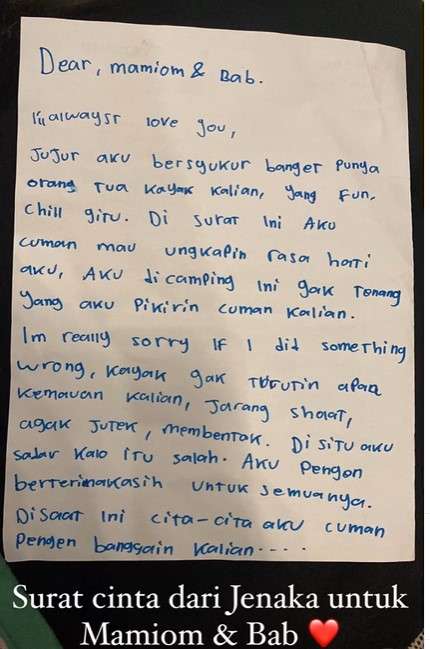 Dear, mamiom & Bab.
I'll alwaysr love you,
Jujur aku bersyukur banget punya
orang Tua kayak kalian, yang Fun,
chill gitu. Di surat ini Aku
cuman mau ungkapin rasa hati
aku, Aku di camping ini gak Tenang
yang aku pikirin cuman kalian.
Im really sorry IF I did something
wrong, kayak gak apaa
kemauan kalian, Jarang shoat,
agak Jutek, membentak. Di situ aku
sadar kalo itu salah. Aku Pengen
berterimakasih untuk semuanya.
Disaat ini cita-cita aku cuman
pengen banggain kalian....
Surat cinta dari Jenaka untuk
Mamiom & Bab ❤️